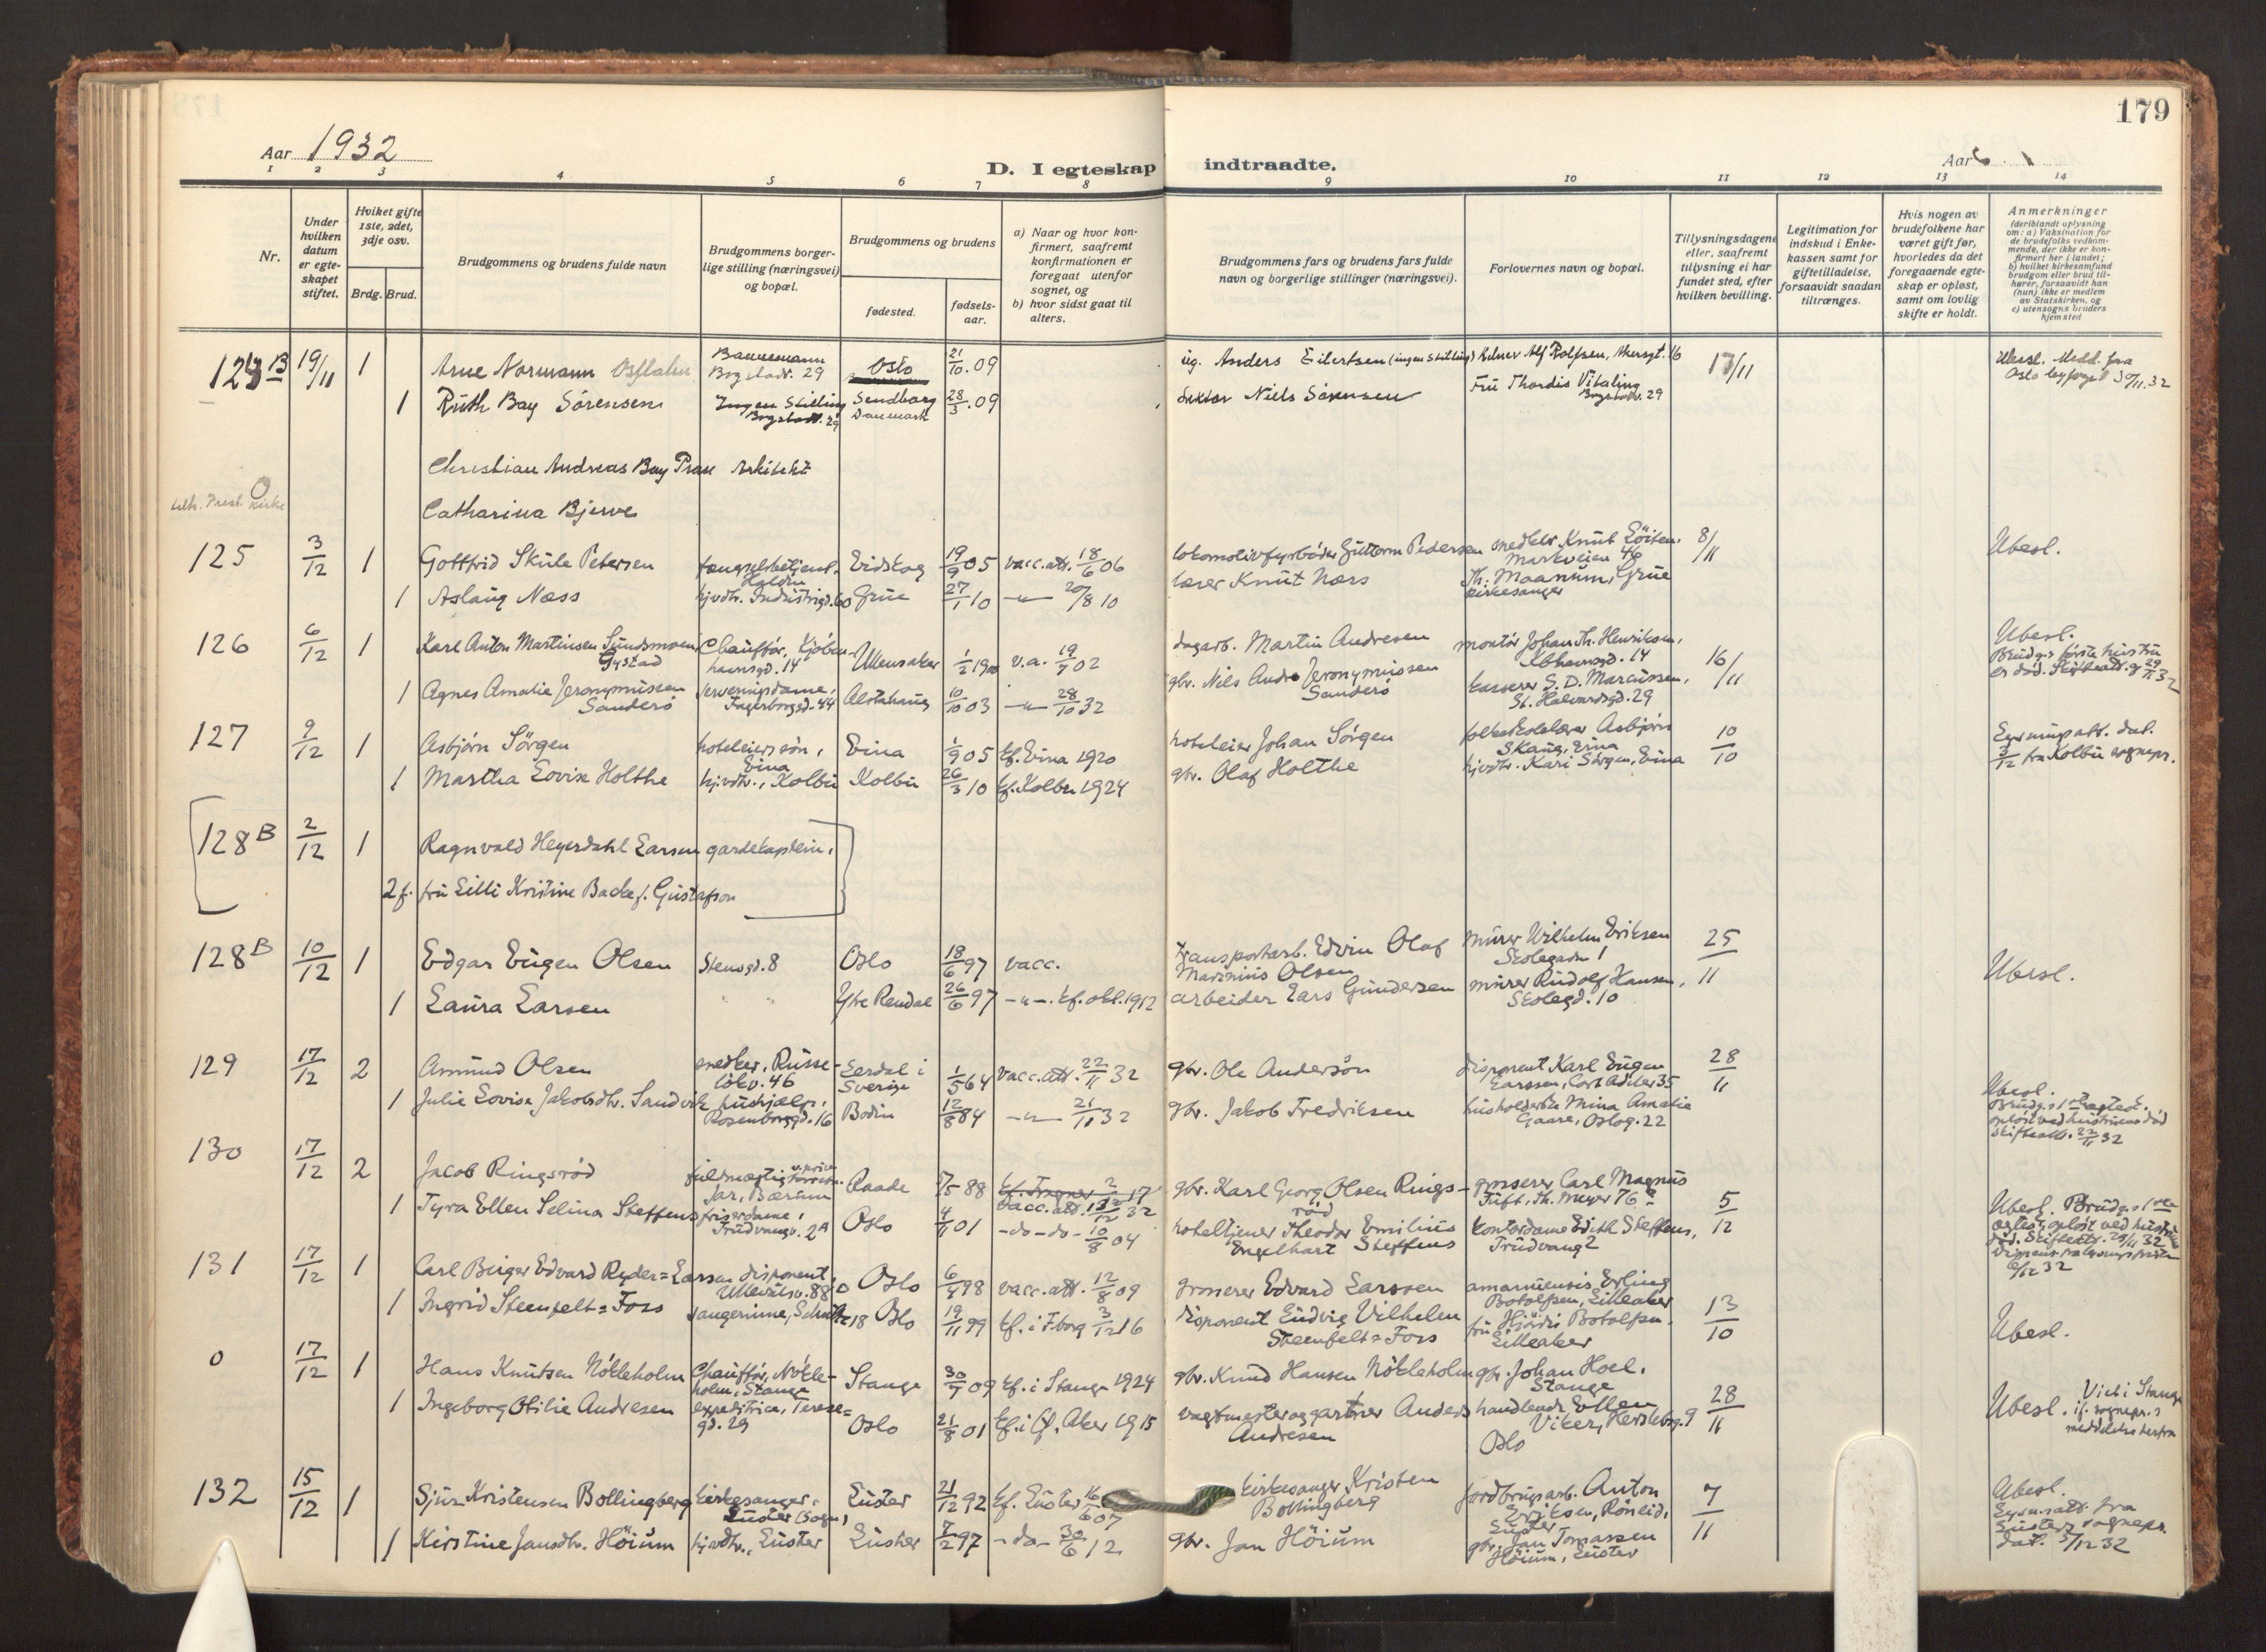 179
Aar 1932
D. I egteskap indtraadte.
Aar
1 2 3 4 5 6 7 8 9 10 11 12 13 14
Nr.
Under hvilken datum er egte-skapet stiftet.
Hviket gifte 1ste, 2det, 3dje osv.
Brdg. Brud.
Brudgommens og brudens fulde navn
Brudgommens borger-lige stilling (næringsvei) og bopæl.
Brudgommens og brudens
fødested.
fødsels-aar.
a) Naar og hvor kon-firmert, saafremt konfirmationen er foregaat utenfor sognet, og
b) hvor sidst gaat til alters.
Brudgommens fars og brudens fars fulde navn og borgerlige stillinger (næringsvei).
Forlovernes navn og bopæl.
Tillysningsdagene eller, saafremt tillysning ei har fundet sted, efter hvilken bevilling.
Legitimation for indskud i Enke-kassen samt for giftetilladelse, forsaavidt saadan tiltrænges.
Hvis nogen av brudefolkene har været gift før, hvorledes da det foregaaende egte-skap er opløst, samt om lovlig skifte er holdt.
Anmerkninger
(deriblandt oplysning om: a) Vaksination for de brudefolks vedkom-mende, der ikke er kon-firmert her i landet; b) hvilket kirkesamfund brudgom eller brud til-hører, forsaavidt han (hun) ikke er medlem av Statskirken, og c) utensogns bruders hjemsted
19/11 1 Arne Normann Bogstadv. 29 Oslo 21/10 09 Anders Eilertsen (ingen stilling) Alf Rolfsen, Akersgt. 16 17/11 Ubesl. Medd. fra Oslo 30/11.32
1 Ruth Bay Sörensen Ingen Stilling Bogstadv. 29 Danmark 28/3 09 Niels Sörensen Fru Thordis Bogstadv. 29
Christian Andreas Bay Arkitekt
O
Catharina Bjerve
125 3/12 1 Gottfrid Skule Petersen fengselsbetjent, Halden Eidskog 19/9 05 vacc. att. 18/6 06 lokomotivfyrbøder Guttorm Pedersen snekker Knut Löiten, Markveien 46 8/11 Ubesl.
1 Aslaug Næss hjvdtr. Industrigd. 60 Grue 27/1 10 -"- 20/8 10 lærer Knut Næss Th. Maanum, Grue kirkesanger
126 6/12 1 Karl Anton Martinsen Sundsmoen Gystad Chauffør, Kjøben-havnsgd. 14 Ullensaker 1/2 1900 v.a. 19/7 02 dagarb. Martin Andresen montør Johan Th. Henriksen, Kbhavnsgd. 14 16/11 Ubesl. Brudg.s første hustru er død. Skifteatt. 29/11 32
1 Agnes Amalie Jeronymussen Sanderø serveringsdame, Fagerborggd. 44 Alstahaug 10/10 03 -"- 28/10 32 gbr. Nils Andr. Jeronymussen Sanderö kasserer S. D. Marcussen, St. Halvardsgd. 29
127 9/12 1 Asbjørn Sörgen hoteleiers søn, Eina Eina 1/9 05 kf. Eina 1920 hoteleier Johan Sörgen folkeskolelærer Asbjørn Skaug, Eina 10/10 Lysningsatt. dat. 3/12 fra Kolbu sognepr.
1 Martha Lovise Holthe hjvdtr., Kolbu Kolbu 26/3 10 kf. Kolbu 1924 gbr. Olaf Holthe hjvdtr. Kari Sörgen, Eina
128 B 2/12 1 Ragnvald Heyerdahl Larsen gardekaptein,
2 f. fru Lilli Kristine Backe f. Gustafson
128 B 10/12 1 Edgar Eugen Olsen Stensgd. 8 Oslo 18/6 97 vacc. transportarb. Edvin Olaf Marinius Olsen murer Wilhelm Eriksen Skolegadn 1 25/11 Ubesl.
1 Laura Larsen Ytre Rendal 26/6 97 -"-. kf. okt. 1912 arbeider Lars Gundersen murer Rudolf Hansen, Skolegd. 10
129 17/12 2 Amund Olsen snekker, Russe-løkv. 46 Lerdal i Sverige 1/5 64 vacc. att. 22/11 32 gbr. Ole Andersön disponent Karl Eugen Larssen, Cort Adeler 35 28/11
1 Julie Lovise Jakobsdtr. Sandvik hushjælp, Rosenborggd. 16 Bodin 12/8 84 -"- 21/11 32 gbr. Jakob Fredriksen husholderske Mina Amalie Gaare, Oslog. 22 Ubesl.
130 17/12 2 Jacob Ringsrød Bærum Raade 88 17 gbr. Karl Georg Olsen Rings-rød grosserer Carl Magnus Tuft, Th. Meyer 76 5/12 Ubesl.
1 Tyra Ellen Selina Steffens frisørdame, Trudvangv. 2A Oslo 01 -do-do- 10/8 04 hoteltjener Theodor Emilius Engelhart Steffens kontordame Edith Steffens, Trudvang 2
131 17/12 1 Carl Birger Edvard Ryder=Larsen disponent, Ullevålsv. 88 Oslo 98 vacc. att. 12/8 09 grosserer Edvard Larssen amanuensis Erling Botolfsen, Lilleaker 13/10 Ubesl.
1 Ingrid Steenfelt=Foss sangerinne, 18 Oslo 19/11 99 kf. i F.borg 3/12 16 disponent Ludvig Vilhelm Steenfelt=Foss fru Hjördis Botolfsen, Lilleaker
0 17/12 1 Hans Knutsen Nökleholm Chauffør, Nökle-holm, Stange Stange 30/7 09 kf. i Stange 1924 gbr. Knud Hansen Nökleholm gbr. Johan Hoel, Stange 28/11 Ubesl. Viet i Stange if. sognepr.s meddelelse herfra
1 Ingeborg Otilie Andresen expeditrice, Terese=gd. 29 Oslo 21/8 01 kf. i Aker 1915 vagtmester og gartner Anders Andresen handlende Ellen Viker, Herslebsg. 9 Oslo
132 15/12 1 Sjur Kristensen Bollingberg kirkesanger, Luster (Sogn) Luster 21/12 92 kf. Luster 16/6 07 kirkesanger Kristen Bollingberg jordbrugsarb. Anton Eriksen, Röneid, Luster 7/11 Ubesl. Lysn.att. fra Luster sognepr. dat. 5/12 32
1 Kirstine Jansdtr. Höium hjvdtr., Luster Luster 7/2 97 -do- 30/6 12 gbr. Jan Höium gbr. Jan Tomassen Höium, Luster